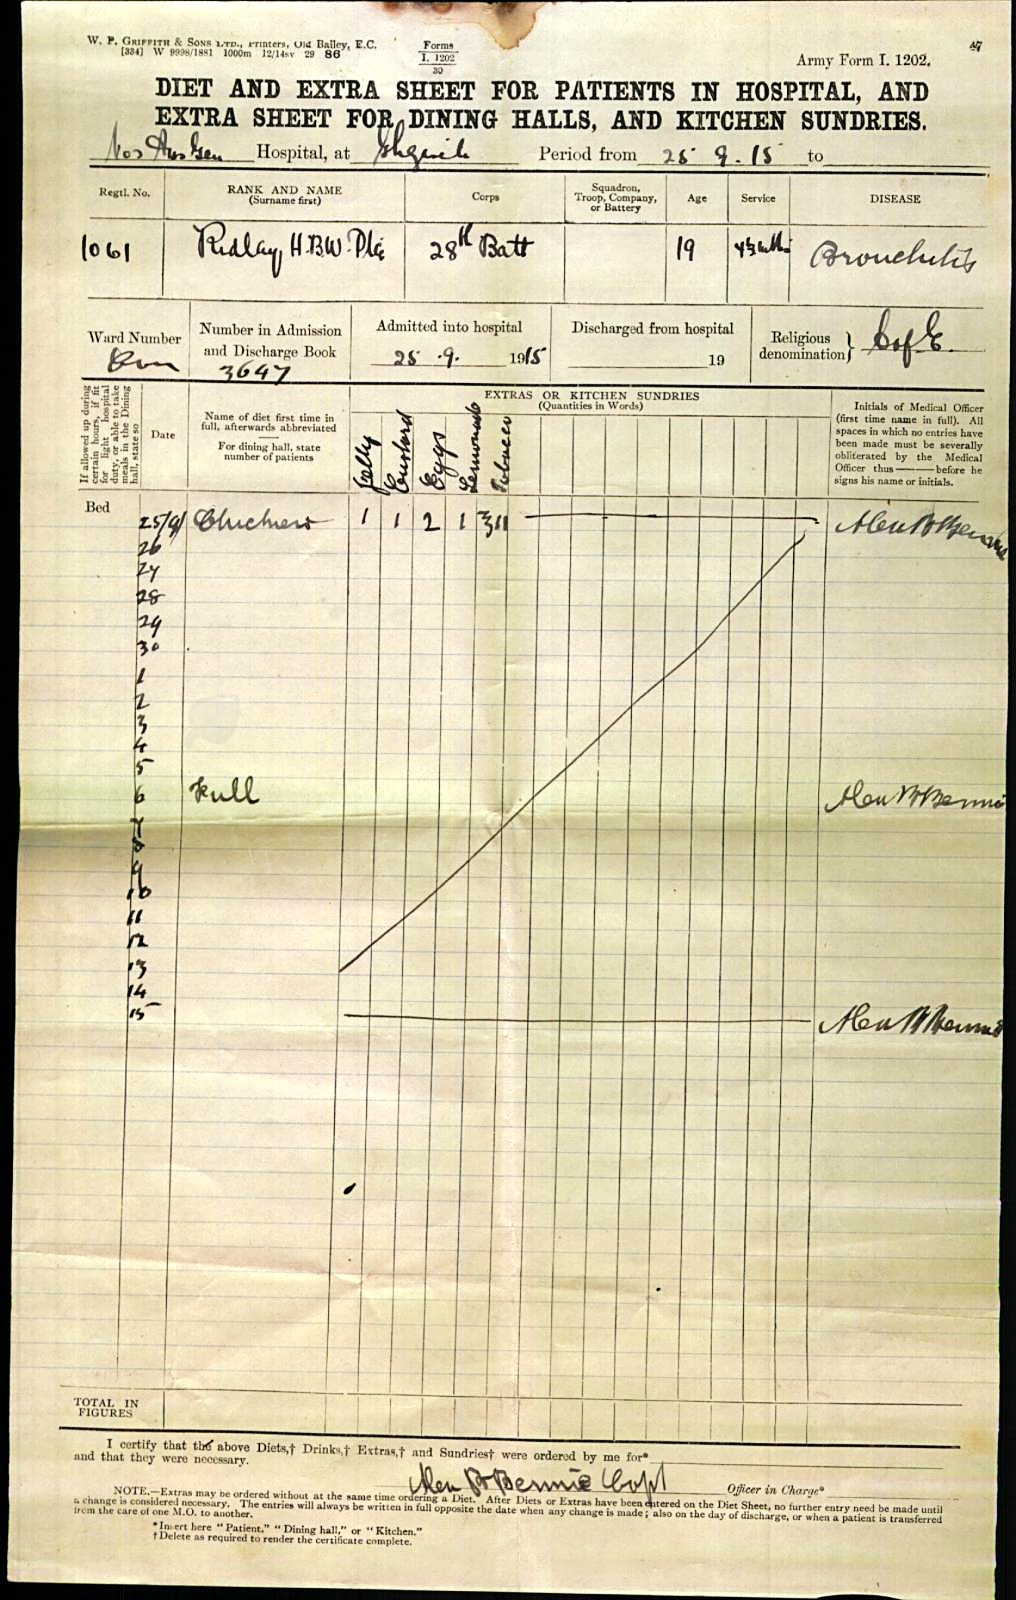 W. P. GRIFFITH & SONS LTD., Printers, Old Bailey, E.C.
[334] W 9998/1881 1000m 12/14sv 29 86
Forms
I. 1202
30
47
Army Form I. 1202.
DIET AND EXTRA SHEET FOR PATIENTS IN HOSPITAL, AND
EXTRA SHEET FOR DINING HALLS, AND KITCHEN SUNDRIES.
Aus Gen Hospital, at Period from 25 9. 15 to
Regtl. No. RANK AND NAME (Surname first) Corps Squadron, Troop, Company, or Battery Age Service DISEASE
1061 Ridlay, H.B.W. Pte 28th Batt 19 Bronchitis
Ward Number Number in Admission and Discharge Book 3647
Admitted into hospital 25 . 9. 1915
Discharged from hospital 19
Religious denomination } C of E.
If allowed up during certain hours, if fit for light hospital duty, or able to take meals in the Dining hall, state so
Date
Name of diet first time in full, afterwards abbreviated
For dining hall, state number of patients
EXTRAS OR KITCHEN SUNDRIES
(Quantities in Words)
Jelly
Custard
Eggs
Lemonade
Tobacco
Initials of Medical Officer
(first time name in full). All
spaces in which no entries have
been made must be severally
obliterated by the Medical
Officer thus —— before he
signs his name or initials.
Bed
25/9/ Chicken 1 1 2 1 Alen B Bennie
26
27
28
29
30
1
2
3
4
5
6 Full Alen B Bennie
7
8
9
10
11
12
13
14
15 Alen B Bennie
TOTAL IN FIGURES
I certify that the above Diets,† Drinks,† Extras,† and Sundries† were ordered by me for*
and that they were necessary.
Alen B Bennie Capt Officer in Charge*
NOTE.—Extras may be ordered without at the same time ordering a Diet. After Diets or Extras have been entered on the Diet Sheet, no further entry need be made until
a change is considered necessary. The entries will always be written in full opposite the date when any change is made; also on the day of discharge, or when a patient is transferred
from the care of one M.O. to another.
*Insert here "Patient," "Dining hall," or "Kitchen."
†Delete as required to render the certificate complete.